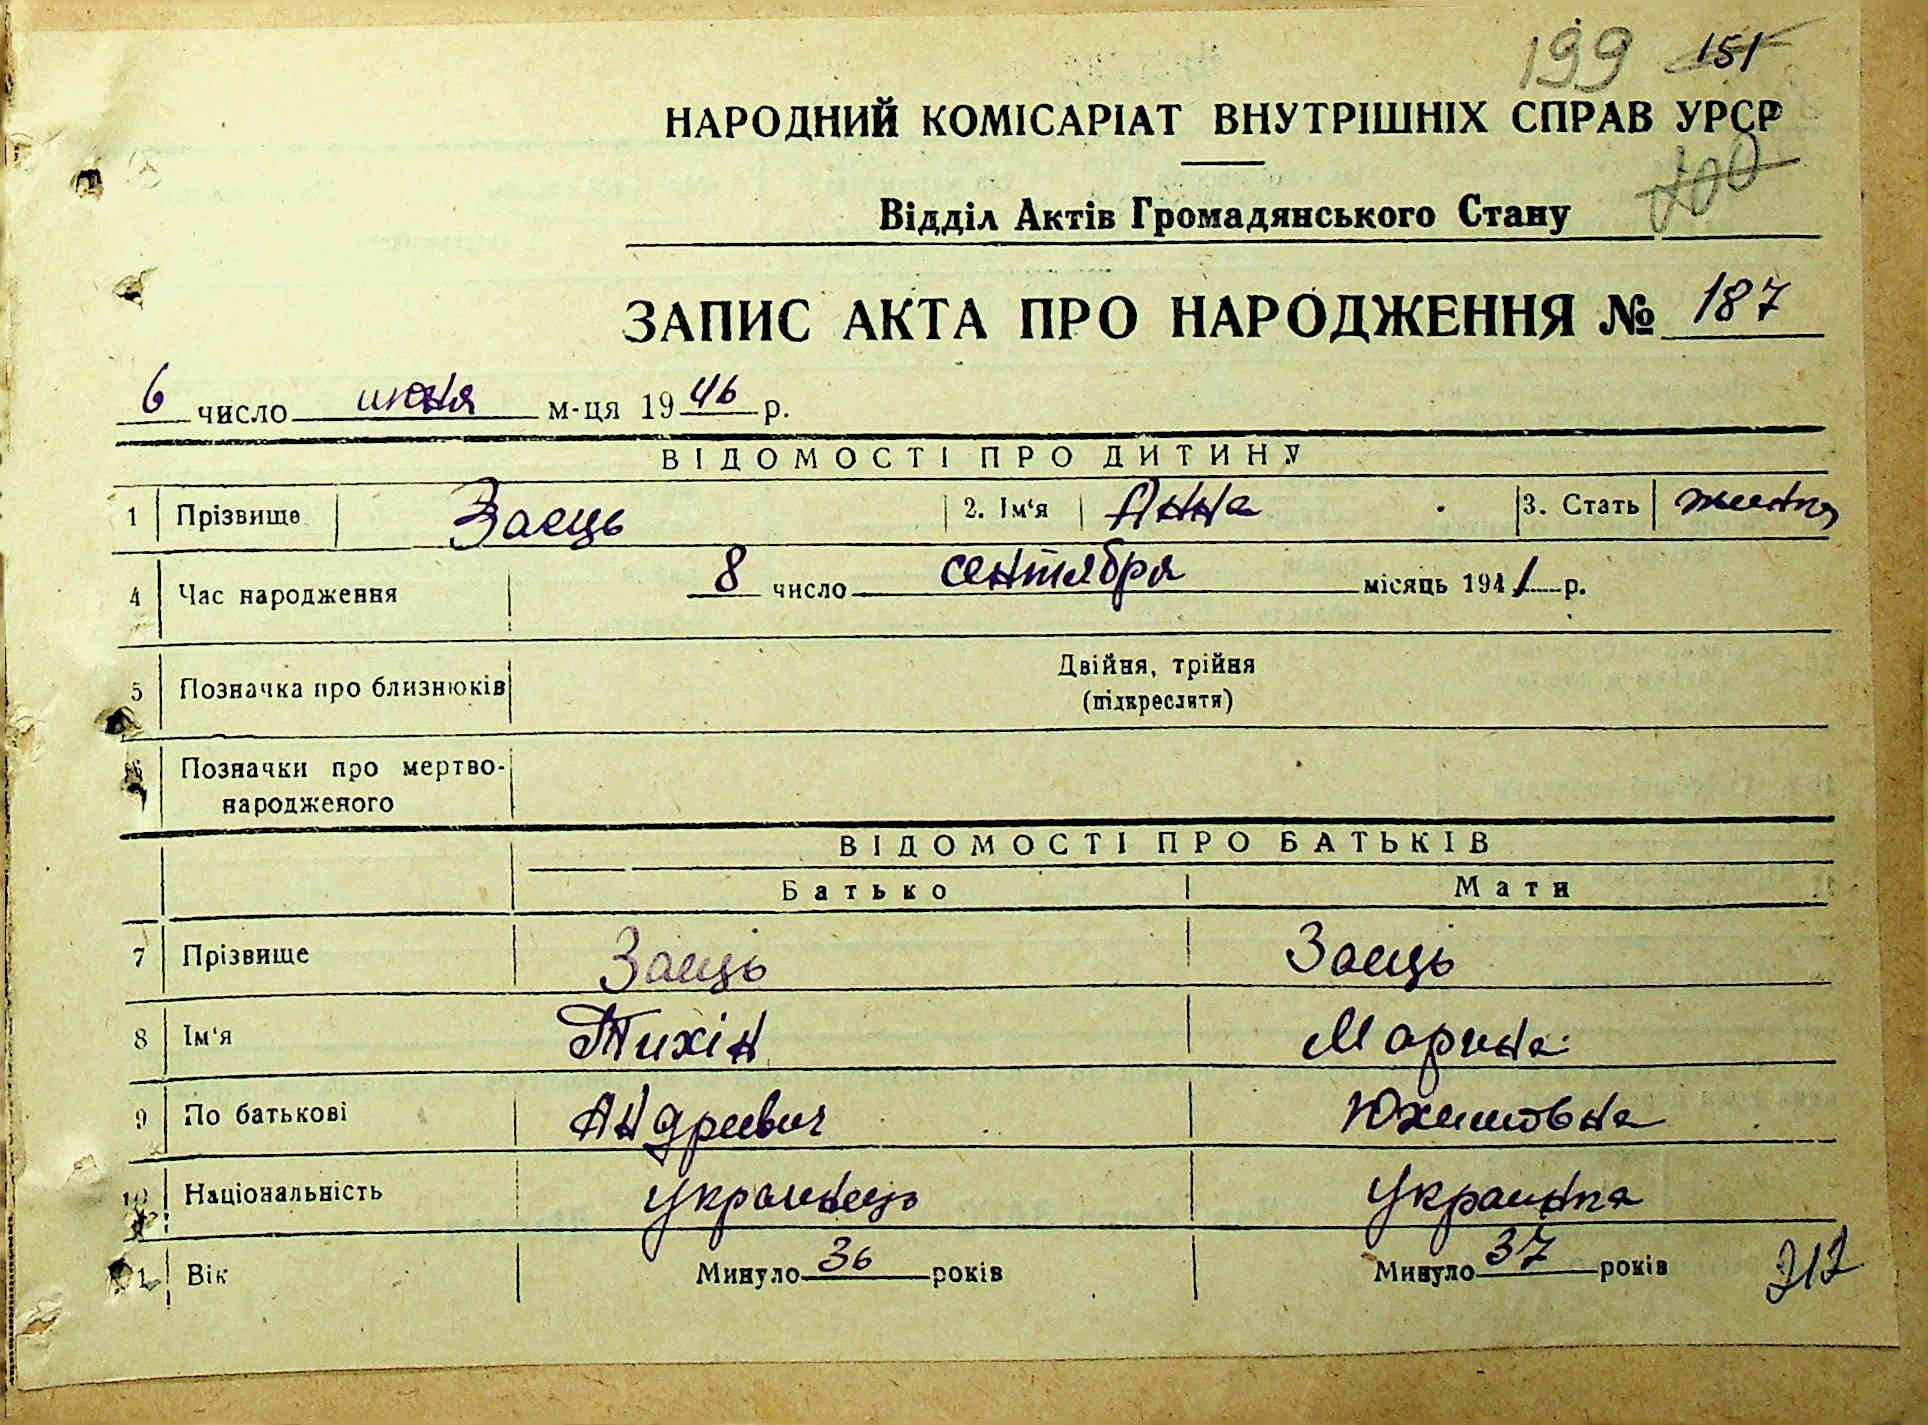 199 151
НАРОДНИЙ КОМІСАРІАТ ВНУТРІШНІХ СПРАВ УРСР
200
Відділ Актів Громадянського Стану
ЗАПИС АКТА ПРО НАРОДЖЕННЯ № 187
6 число июня м-ця 1946 р.
ВІДОМОСТІ ПРО ДИТИНУ
1 Прізвище Заець 2. Ім'я Анна 3. Стать
4 Час народження 8 число сентября місяць 1941 р.
5 Позначка про близнюків Двійня, трійня
(підкреслити)
6 Позначки про мертво-
народженого
ВІДОМОСТІ ПРО БАТЬКІВ
Батько Мати
7 Прізвище Заець Заець
8 Ім'я Тихін Марина
9 По батькові Андреевич Юхимовна
10 Національність украинець украінка
11 Вік Минуло 36 років Минуло 37 років
212